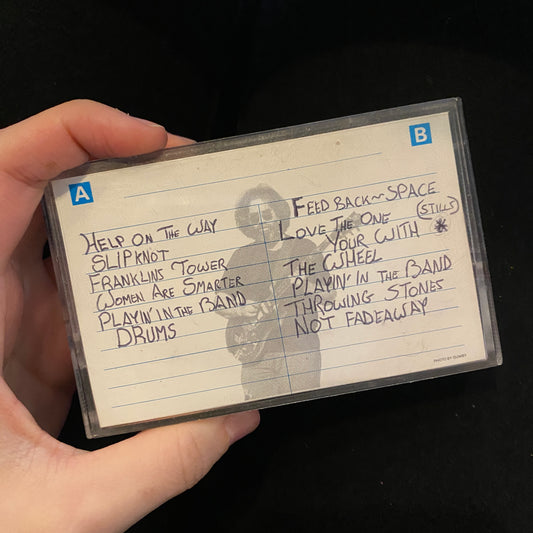 A
HELP ON THE WAY
SLIPKNOT
FRANKLINS TOWER
WOMEN ARE SMARTER
PLAYIN' IN THE BAND
DRUMS
B
FEED BACK ~ SPACE
LOVE THE ONE (STILLS)
YOUR WITH *
THE WHEEL
PLAYIN' IN THE BAND
THROWING STONES
NOT FADEAWAY